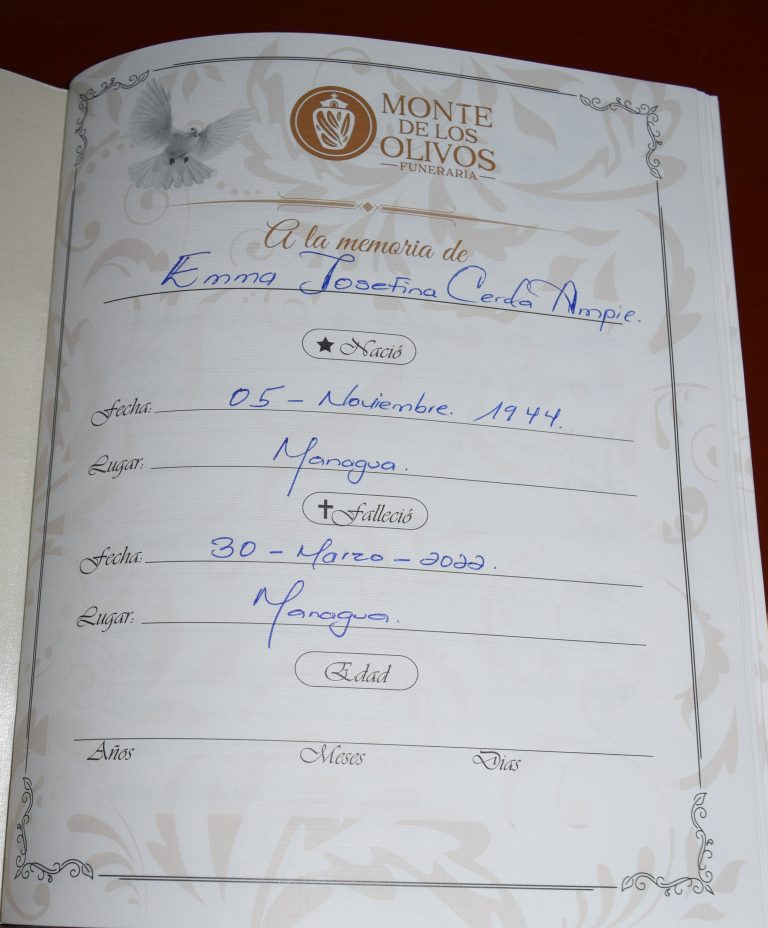 MONTE
DE LOS
OLIVOS
FUNERARIA
A la memoria de
Emma Josefina Cerda Ampie.
Nació
Fecha: 05 - Noviembre. 1944.
Lugar: Managua.
Falleció
Fecha: 30 - Marzo - 2022.
Lugar: Managua.
Edad
Años Meses Dias